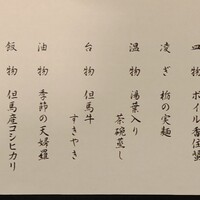 物 ボイル香住
凌ぎ 栃の実麺
温物 湯葉入り
茶碗蒸し
台物 但馬牛
すきやき
油物 季節の天婦羅
飯物 但馬産コシヒカリ